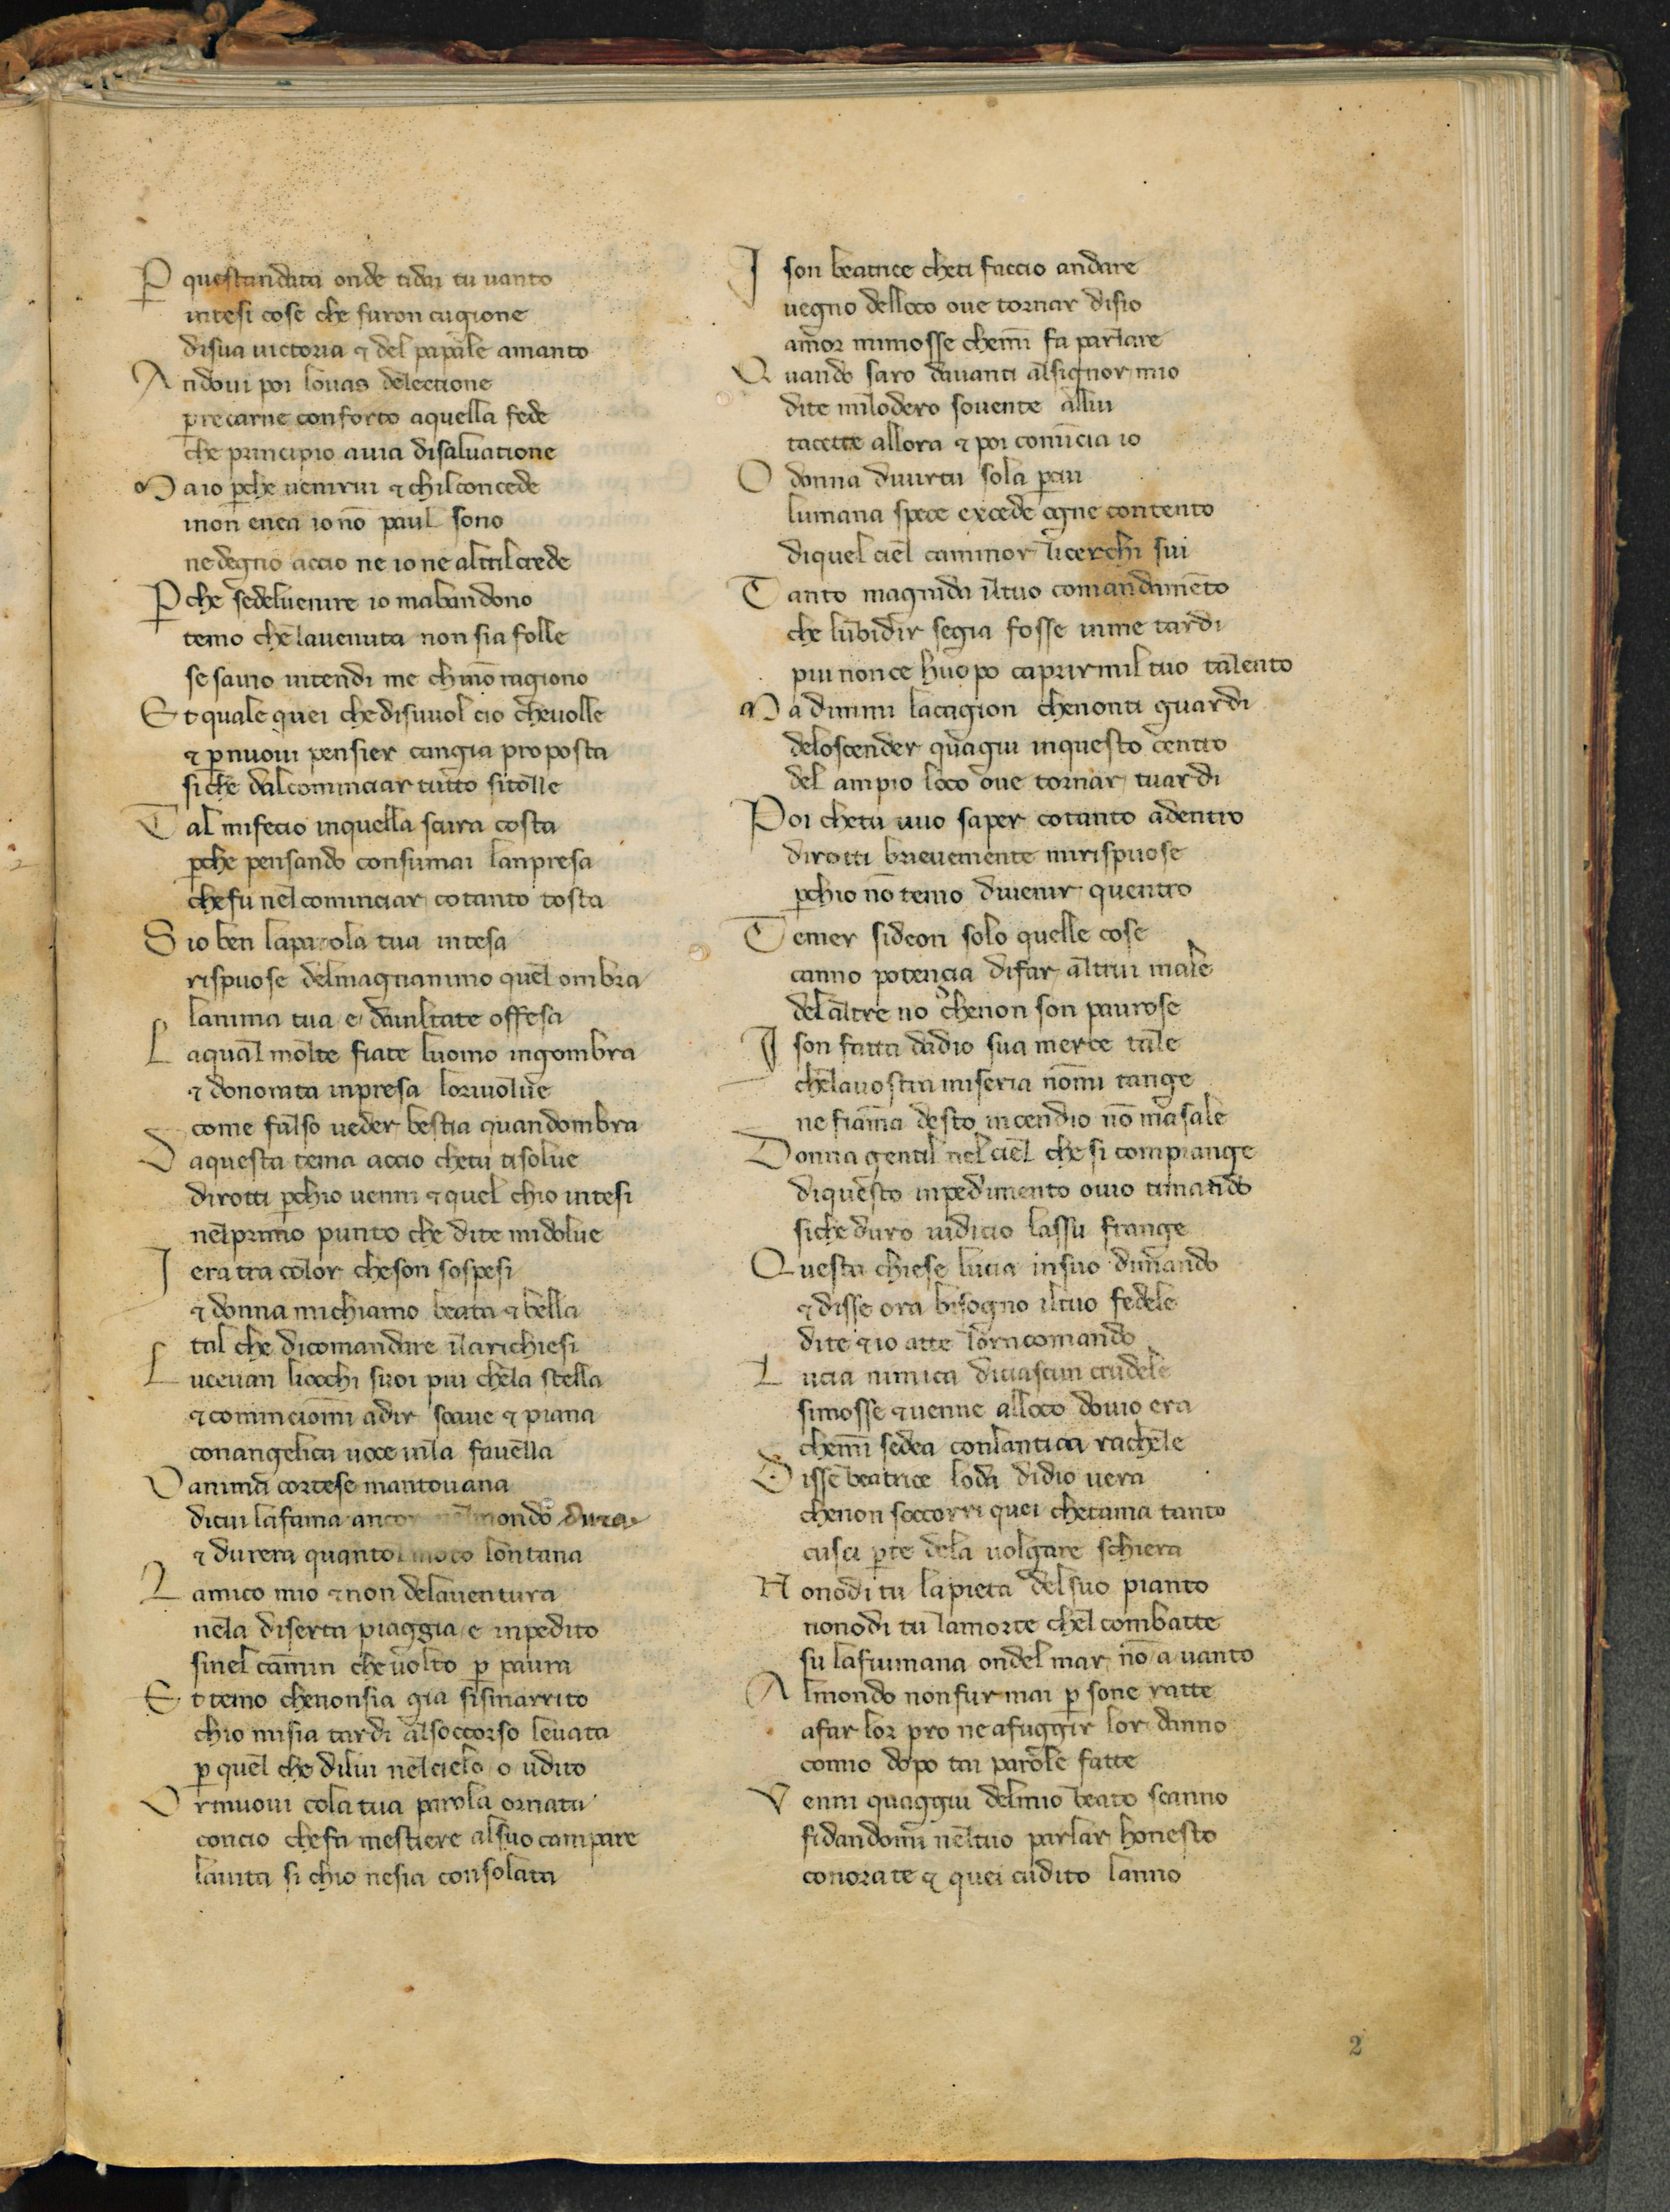 P questandata onde tidai tu uanto
intesi cose che furon cagione
disua uictoria ⁊ del papale amanto
A ndoui poi louas delectione
p̱recarne conforto aquella fede
che principio auia disaluatione
M aio ꝑche uenirui ⁊ chilconcede
inon̄ enea io nō paul sono
ne degno accio ne io ne altrilcrede
P̱ che sedeluenire io mabandono
temo che lauenuta non sia folle
se sauio intendi me chinō ragiono
E t quale quei che disuuol cio cheuolle
⁊ ꝑ nuoui pensier cangia proposta
siche dalcominciar tutto sitolle
T al mifecio inquella scura costa
ꝑche pensando consumai lanpresa
chefu nelcominciar cotanto tosta
S io ben laparola tua intesa
rispuose delmagnanimo quel ombra
lanima tua e dauiltate offesa
L aqual molte fiate luomo ingombra
⁊ donorata inpresa loriuolue
come falso ueder bestia quandombra
D aquesta tema accio chetu tisolue
dirotti ꝑchio uenni ⁊ quel chio intesi
nelprimo punto che dite midolue
I era tra color cheson sospesi
⁊ donna michiamo beata ⁊ bella
tal che dicomandare ilarichiesi
L uceuan liocchi suoi piu chela stella
⁊ comincionmi adir soaue ⁊ piana
conangelica uoce insla fauella
O anima cortese mantouana
dicui lafama ancor nelmondo dura
⁊ durera quantol moto lontana
L amico mio ⁊ non delauentura
nela diserta piaggia e inpedito
sinel camin che uolto ꝑ paura
E t temo chenonsia gia sismarrito
chio misia tardi alsoccorso leuata
ꝑ quel che dilui nelcielo o udito
O rmuoui cola tua parola ornata
concio chefa mestiere alsuo campare
laiuta si chio nesia consolata
I son beatrice cheti faccio andare
uegno delloco oue tornar disio
amor mimosse chemi fa parlare
Q uando saro dauanti alsignor mio
dite milodero souente allui
tacette allora ⁊ poi comīcia io
O donna diuirtu sola ꝑ cui
lumana spece excede ogne contento
diquel ciel caminor licerchi sui
T anto magrada iltuo comandamēto
che lubidir segia fosse inme tardi
piu nonce huopo caprirmil tuo talento
M a dimmi lacagion chenonti guardi
deloscender quagiu inquesto centro
del ampio loco oue tornar tuardi
P oi chetu uuo saper cotanto adentro
dirotti brieuemente mirispuose
ꝑchio nō temo diuenir quentro
T emer sideon solo quelle cose
canno potencia difar altrui male
delaltre no chenon son paurose
I son fatta dadio sua merce tale
chelauostra miseria nōmi tange
ne fiāma desto incendio nō masale
D onna gentil nel ciel che si compiange
diquesto inpedimento ouio timando
siche duro iudicio lassu frange
Q uesta chiese lucia insuo dimando
⁊ disse ora bisogno iltuo fedele
dite ⁊ io atte loracomando
L ucia nimica diciascun crudele
simosse ⁊ uenne alloco douio era
chemi sedea conlantica rachele
D isse beatrice loda didio uera
chenon soccorri quei chetama tanto
cusci ꝑte dela uolgare schiera
N onodi tu lapieta delsuo pianto
nonodi tu lamorte chel combatte
su lafiumana ondel mar nō a uanto
A lmondo nonfur mai ꝑ sone ratte
afar lor pro ne afuggir lor danno
comio dopo tai parole fatte
V enni quaggiu delmio beato scanno
fidandomi neltuo parlar honesto
conorate ⁊ quei cudito lanno
2